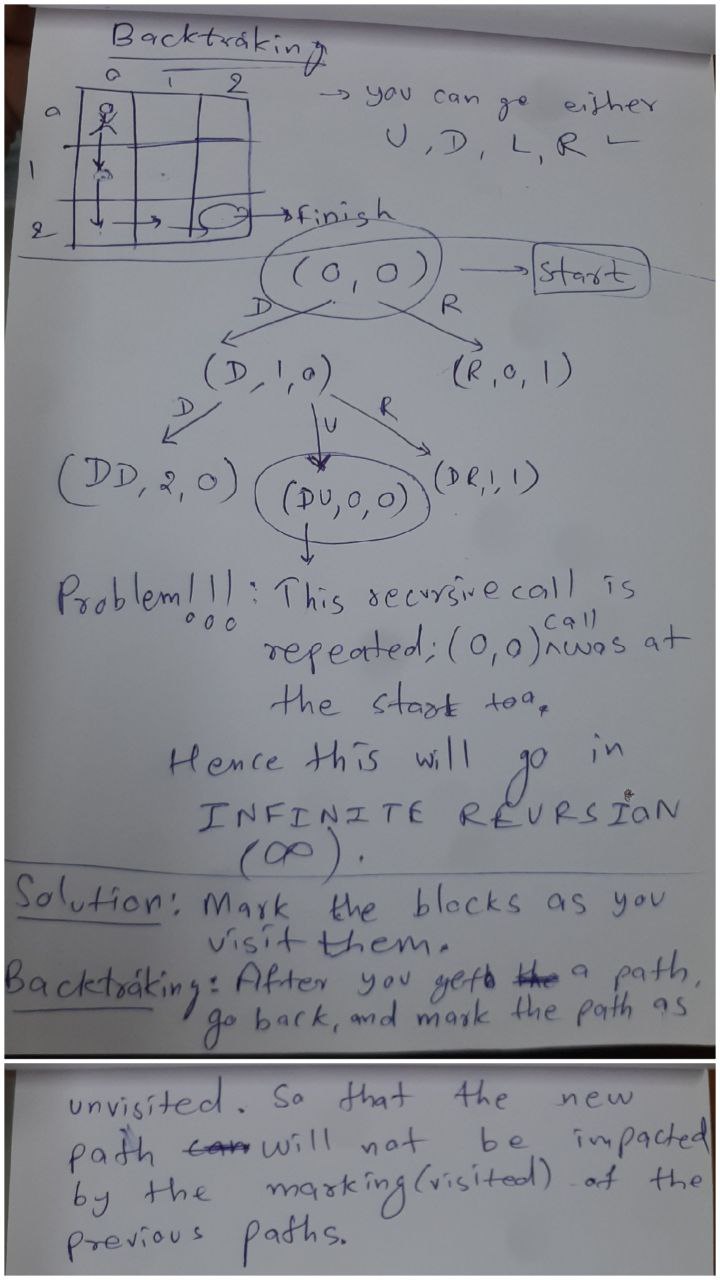 Backtraking
0 1 2
0
1
2
→ you can go either
U, D, L, R
→ Finish
(0, 0) → Start
D R
(D, 1, 0) (R, 0, 1)
D U R
(DD, 2, 0) (DU, 0, 0) (DR, 1, 1)
Problem!!! : This recursive call is
repeated; (0, 0) call was at
the start too.
Hence this will go in
INFINITE REURSION
(∞).
Solution: Mark the blocks as you
visit them.
Backtraking: After you get a path,
go back, and mark the path as
unvisited. So that the new
path will not be impacted
by the marking (visited) of the
previous paths.